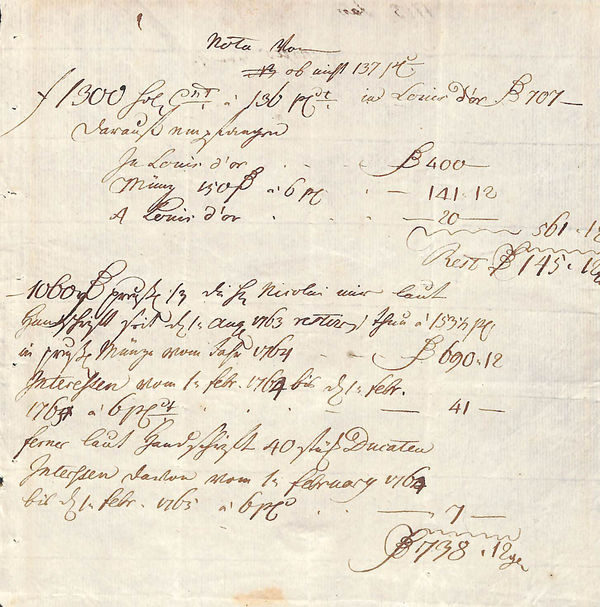 Nota Von
ob nicht 137 pC
f 1300 holl Cnt. à 136 pCt. in Louis d'or Rt 707 —
darauf empfangen
In Louis d'or Rt 400 —
Müntz 150 Rt à 6 pC 141 . 12
4 Louis d'or 20 —
561 . 12
Rest Rt 145 . 12
1060 Rt preuß. die H Nicolai mir laut
Handschrifft seit d 1. Aug 1763 thun à 153½ pC
in preuß. Müntze vom Jahr 1764 Rt 690 . 12
Interessen vom 1. febr. 1764 bis d 1. febr.
1764 à 6 pCt 41 —
ferner laut Handschrifft 40 stük Ducaten
Interssen davon vom 1. february 1764
bis d 1. febr. 1765 à 6 pC 7 —
Rt 738 . 12 ge